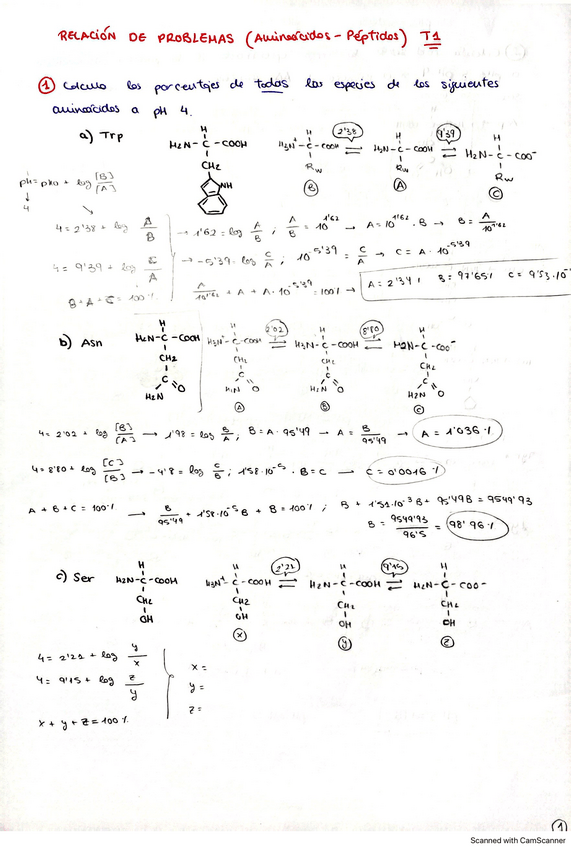 RELACIÓN DE PROBLEMAS (Aminoácidos - Péptidos) T1
① Calcula los porcentajes de todas las especies de los siguientes
aminoácidos a pH 4.
a) Trp
H
H₂N - C - COOH
CH₂
NH
H
H₃N⁺ - C - COOH
Rw
B
2'38
H
H₃N - C - COOH
Rw
A
9'39
H
H₂N - C - COO⁻
Rw
C
pH = pka + log [B]/[A]
4
4 = 2'38 + log A/B → 1'62 = log A/B ; A/B = 10^1'62 → A = 10^1'62 · B → B = A/10^1'62
4 = 9'39 + log C/A → -5'39 = log C/A ; 10^-5'39 = C/A → C = A · 10^-5'39
B + A + C = 100% A/10^1'62 + A + A · 10^-5'39 = 100% → A = 2'34% B = 97'65% C = 9'53 · 10⁻
b) Asn
H
H₂N - C - COOH
CH₂
C
O
H₂N
H
H₃N⁺ - C - COOH
CH₂
C
H₂N O
A
2'02
H
H₃N - C - COOH
CH₂
C
H₂N O
B
8'80
H
H₂N - C - COO⁻
CH₂
C
H₂N O
C
4 = 2'02 + log [B]/[A] → 1'98 = log B/A ; B = A · 95'49 → A = B/95'49 → A = 1'036%
4 = 8'80 + log [C]/[B] → -4'8 = log C/B ; 1'58 · 10⁻⁵ · B = C → C = 0'0016%
A + B + C = 100% → B/95'49 + 1'58 · 10⁻⁵ B + B = 100% ; B + 1'51 · 10⁻³ B + 95'49B = 9549'93
B = 9549'93/96'5 = 98'96%
c) Ser
H
H₂N - C - COOH
CH₂
OH
H
H₃N⁺ - C - COOH
CH₂
OH
x
2'21
H
H₂N - C - COOH
CH₂
OH
y
9'15
H
H₂N - C - COO⁻
CH₂
OH
z
4 = 2'21 + log y/x
4 = 9'15 + log z/y
x + y + z = 100%
x =
y =
z =
1
Scanned with CamScanner